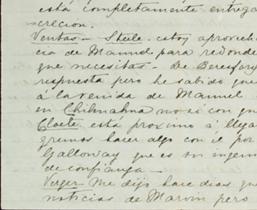 está completamente entrega
crecion.
Ventas – Steele. estoy aprovech
cia de Manuel para redonde
que necesitas – De Beresfor
respuesta pero he sabido que
á la venida de Manuel
en Chihuahua no si con qu
Cloete está proximo á llega
gremos hacer algo con él por
Galloway que es un ingeni
de confianza –
Verger me dijo hace dias que
noticias de Marvin pero